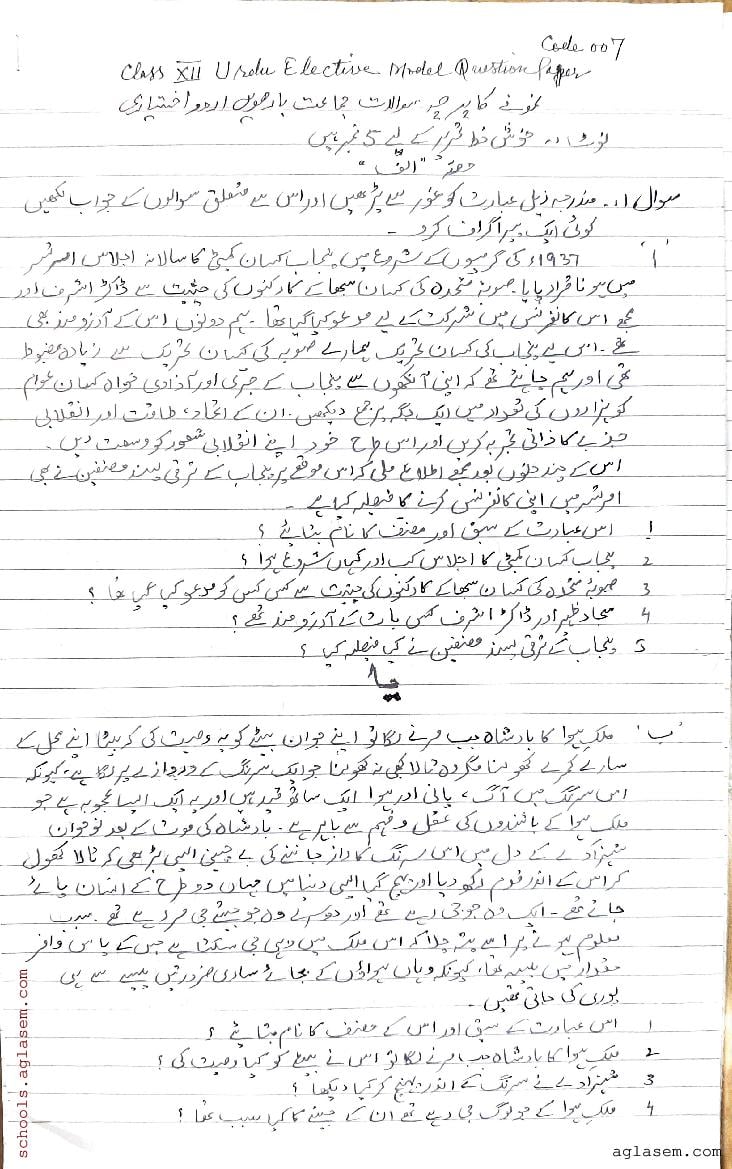 Code 007
Class XII Urdu Elective Model Question Paper
نمونے کا پرچہ سوالات جماعت بارھویں اردو اختیاری
نوٹ :۔ خوش خط تحریر کے لیے 5 نمبر ہیں
حصّہ "الف"
سوال 1:۔ مندرجہ ذیل عبارت کو غور سے پڑھیں اور اس سے متعلق سوالوں کے جواب لکھیں
کوئی ایک پیراگراف کرو ۔
'ا' 1937ء کی گرمیوں کے شروع میں پنجاب کسان کمیٹی کا سالانہ اجلاس امرتسر
میں ہونا قرار پایا۔ صوبۂ متحدہ کی کسان سبھا کے کارکنوں کی حیثیت سے ڈاکٹر اشرف اور
مجھے اس کانفرنس میں شرکت کے لیے مدعو کیا گیا تھا۔ ہم دونوں اس کے آرزومند بھی
تھے۔ اس لیے پنجاب کی کسان تحریک ہمارے صوبہ کی کسان تحریک سے زیادہ مضبوط
تھی اور ہم چاہتے تھے کہ اپنی آنکھوں سے پنجاب کے جری اور آزادی خواہ کسان عوام
کو ہزاروں کی تعداد میں ایک جگہ پر جمع دیکھیں۔ ان کے اتحاد، طاقت اور انقلابی
جذبے کا ذاتی تجربہ کریں اور اس طرح خود اپنے انقلابی شعور کو وسعت دیں۔
اس کے چند دنوں بعد مجھے اطلاع ملی کہ اس موقعے پر پنجاب کے ترقی پسند مصنفین نے بھی
امرتسر میں اپنی کانفرنس کرنے کا فیصلہ کیا ہے۔
1 اس عبارت کے سبق اور مصنف کا نام بتائیے ؟
2 پنجاب کسان کمیٹی کا اجلاس کب اور کہاں شروع ہوا ؟
3 صوبۂ متحدہ کی کسان سبھا کے کارکنوں کی حیثیت سے کس کس کو مدعو کیا گیا تھا ؟
4 سجاد ظہیر اور ڈاکٹر اشرف کس بات کے آرزومند تھے ؟
5 پنجاب کے ترقی پسند مصنفین نے کیا فیصلہ کیا ؟
یا
'ب' ملک ہوا کا بادشاہ جب مرنے لگا تو اپنے جوان بیٹے کو یہ وصیت کی کہ بیٹا اپنے محل کے
سارے کمرے کھولنا مگر وہ تالا کبھی نہ کھولنا جو ایک سرنگ کے دروازے پر لگا ہے، کیونکہ
اس سرنگ میں آگ، پانی اور ہوا ایک ساتھ قید ہیں اور یہ ایک ایسا عجوبہ ہے جو
ملک ہوا کے باشندوں کی عقل و فہم سے باہر ہے۔ بادشاہ کی موت کے بعد نوجوان
شہزادے کے دل میں اس سرنگ کا راز جاننے کی بے چینی ایسی بڑھی کہ تالا کھول
کر اس کے اندر قدم رکھ دیا اور پہنچ گیا ایسی دنیا میں جہاں دو طرح کے انسان پائے
جاتے تھے۔ ایک وہ جو جی رہے تھے اور دوسرے وہ جو جیتے جی مر رہے تھے۔ سبب
معلوم ہونے پر اسے پتہ چلا کہ اس ملک میں وہی جی سکتا ہے جس کے پاس وافر
مقدار میں پیسہ تھا، کیونکہ وہاں ہواؤں کے بجائے ساری ضرورتیں پیسے سے ہی
پوری کی جاتی تھیں۔
1 اس عبارت کے سبق اور اس کے مصنف کا نام بتائیے ؟
2 ملک ہوا کا بادشاہ جب مرنے لگا تو اس نے بیٹے کو کیا وصیت کی ؟
3 شہزادے نے سرنگ کے اندر پہنچ کر کیا دیکھا ؟
4 ملک ہوا کے جو لوگ جی رہے تھے ان کے جینے کا کیا سبب تھا ؟
schools.aglasem.com
aglasem.com